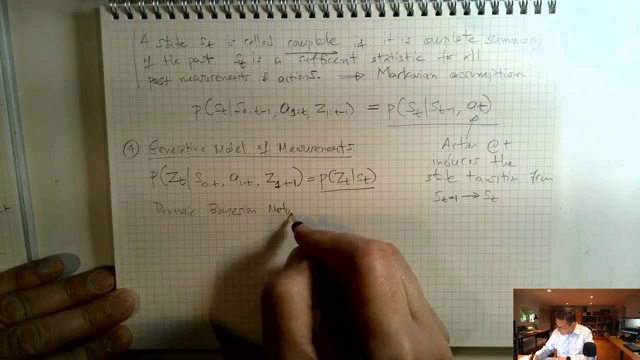 A state St is called complete if it is complete summary
of the past St is a sufficent statistic for all
past measurements & actions. ⟹ Markovian assumption
p(St|S0:t-1, a1:t, Z1:t-1) = p(St|St-1, at)
Action @ t
induces the
state transition from
St-1 → St
④ Generative Model of Measurements
p(Zt|S0:t, a1:t, Z1:t-1) = p(Zt|St)
Dynamic Bayesian Netw